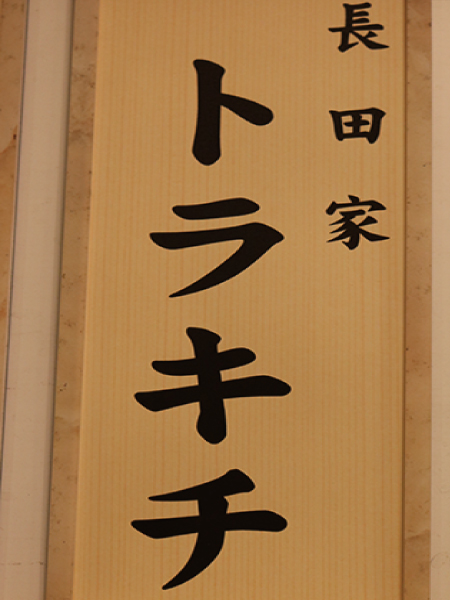 長田家
トラキチ